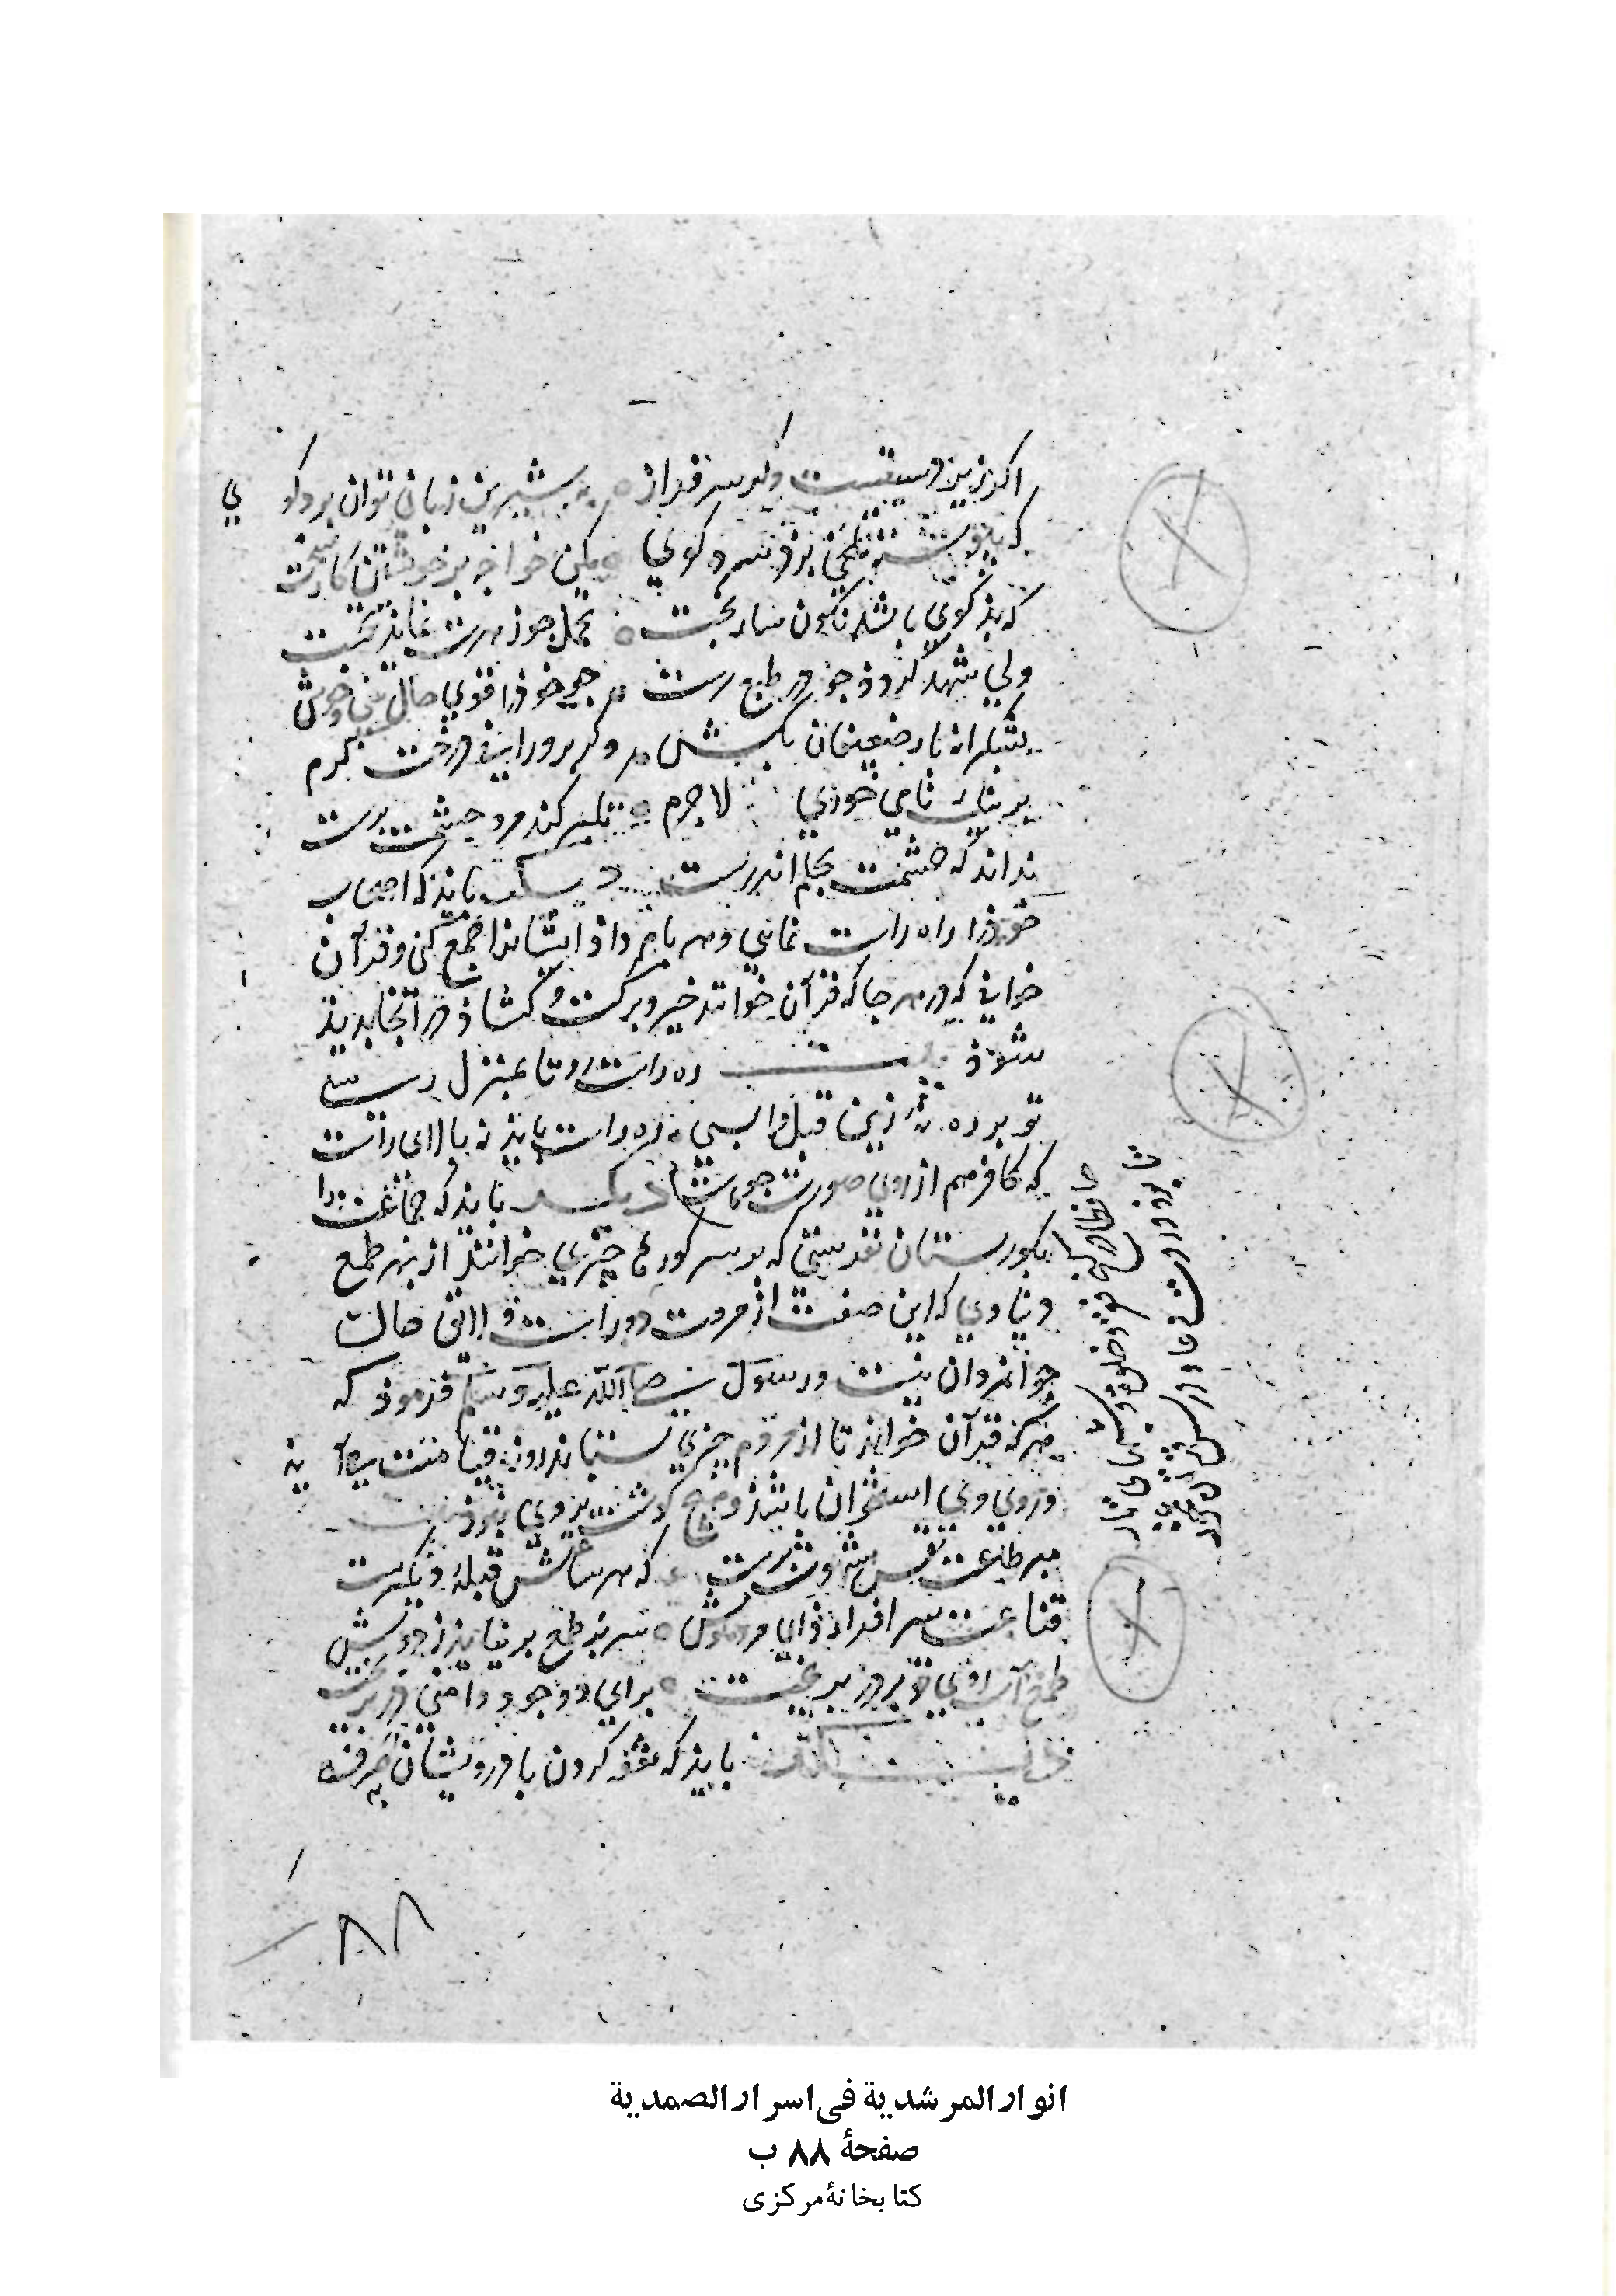 اکر زیر دستیست وکر سرفراز به شیرین زبانی توان برد کوی
که پیوسته تلخی برد تند کوی مکن خواجه بر خویشتن کار سخت
که بذ کوی باشد نکون سار بخت تحمل جو زهرت نماید نخست
ولی شهد کردد جو در طبع رست جو خوذرا قوی حال بینی و خوش
بشکرانه بار ضعیفان بکش وکر پرورانی درخت کرم
بر نیک نامی خوری لاجرم تکبر کند مرد حشمت پرست
نداند که حشمت بحلم اندرست دیگر بایذ که اصحاب
خوذرا راه راست نمایی وهر بام داذ ایشانرا جمع کنی وقرآن
خوانی که در هر جا که قرآن خوانند خیر وبرکت وکشاذ در آنجا بدید
شوذ بیت ره راست رو تا بمنزل رسی
تو بر ره نهٔ زین قبل واپسی ره راست بایذ نه بالای راست
که کافر هم از روی صورت جو ماست دیکر بایذ که جماعت را
بکورستان نفرستی که بر سر کورها چیزی خوانند از بهر طمع
دنیاوی که این صفت از مروت دورست ولایق حال
جوانمردان نیست ورسول صلی الله علیه وسلم فرموذ که
هرکه قرآن خواند تا از مردم چیزی بستاند روز قیامت بیاید
وروی وی استخوان باشد وهیچ کوشت بروی نبوذ بیت
مبر طاعت نفس شهوت پرست که هر ساعتش قبلهٔ دیکرست
قناعت سرافرازذ ای مرد هوش سر پر طمع بر نیایذ ز دوش
طمع آب روی توقر بریخت برای دو جو دامنی در بریخت
بایذ که سفره کردن با درویشان حرفت
۸۸
انوار المرشدیة فی اسرار الصمدیة
صفحهٔ ۸۸ ب
کتابخانهٔ مرکزی